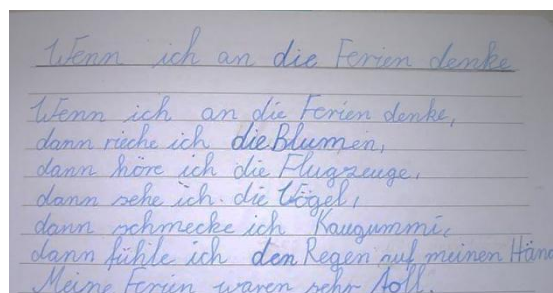 Wenn ich an die Ferien denke
Wenn ich an die Ferien denke,
dann rieche ich die Blumen,
dann höre ich die Flugzeuge,
dann sehe ich die Vögel,
dann schmecke ich Kaugummi,
dann fühle ich den Regen auf meinen Händ
Meine Ferien waren sehr toll.